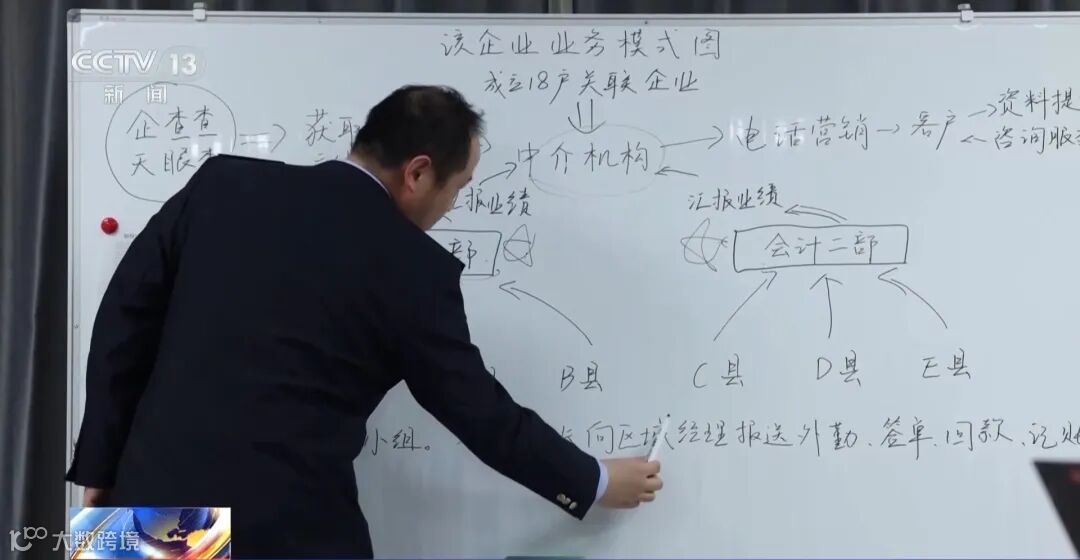 CCTV 13
新闻
该企业业务模式图
成立18户关联企业
企查查
天眼
获取
中介机构
电话营销
客户
资料提
咨询服
汇报业绩
汇报业绩
部
会计二部
B县
C县
D县
E县
小组。
向区域经理报送外勤、签单、回款、记账
大数跨境